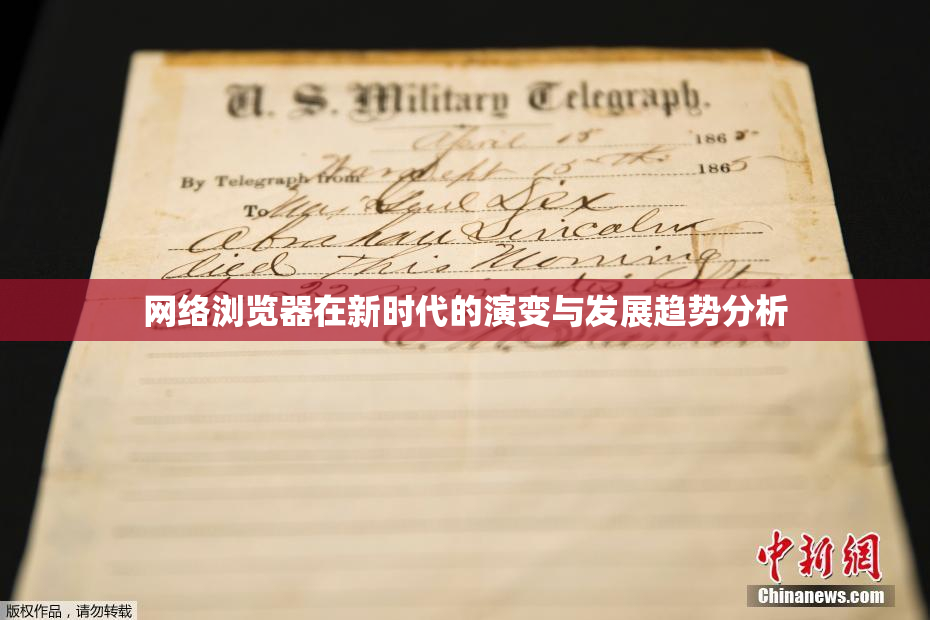 U. S. Military Telegraph.
April 15 1865
By Telegraph from War Dept 15th 1865
To Maj Genl Dix
Abraham Lincoln
died This Morning
at 22 minutes after
网络浏览器在新时代的演变与发展趋势分析
E. M. Stanton
中新网
Chinanews.com
版权作品，请勿转载